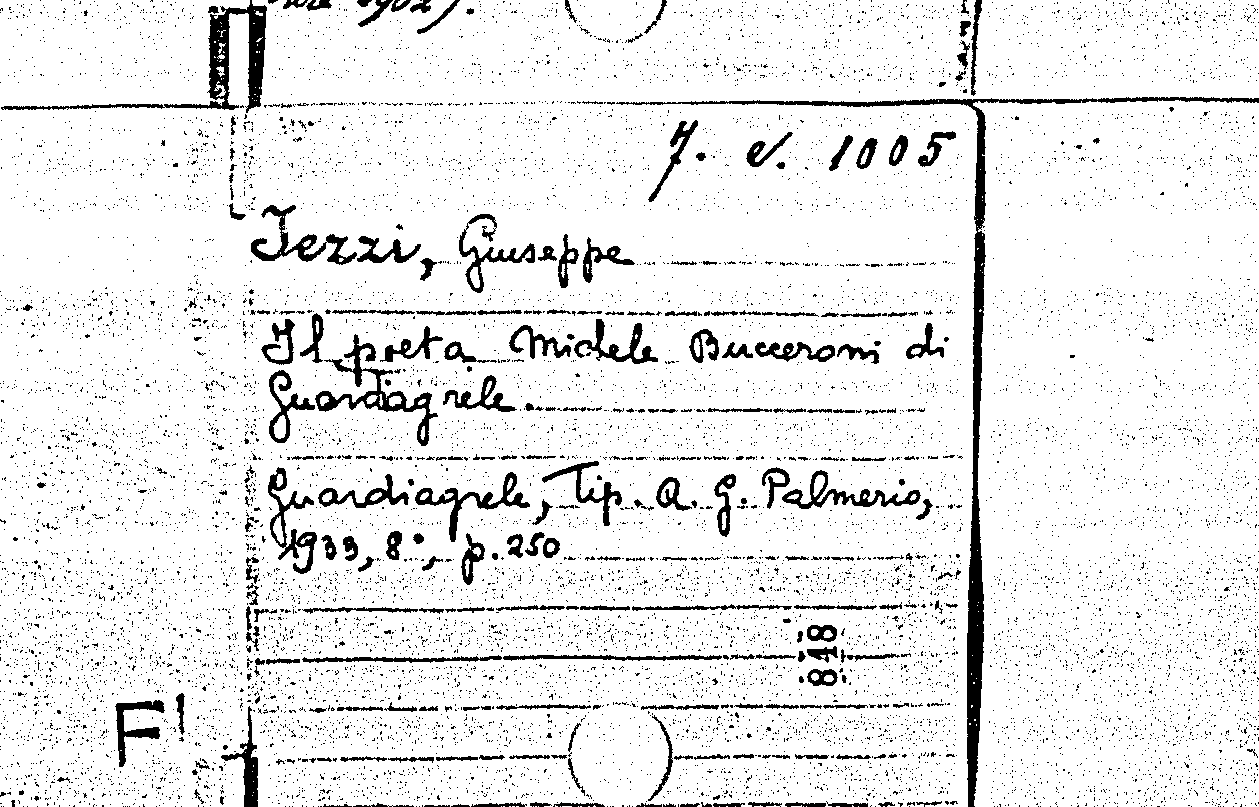 7. v. 1005
Iezzi, Giuseppe
Il poeta Michele Bucceroni di
Guardiagrele.
Guardiagrele, Tip. A. G. Palmerio,
1933, 8°, p. 250
848
F